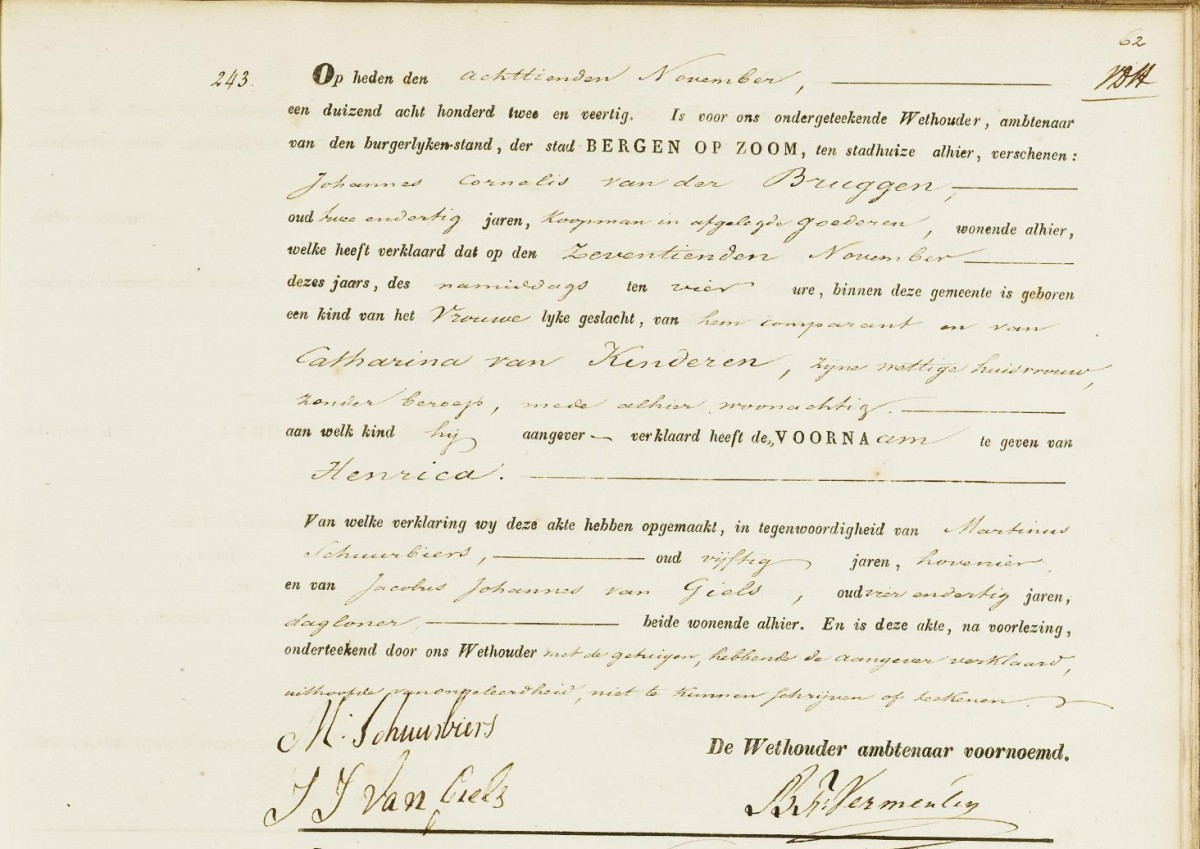 62
243. Op heden den achttienden November,
een duizend acht honderd twee en veertig. Is voor ons ondergeteekende Wethouder, ambtenaar
van den burgerlyken-stand, der stad BERGEN OP ZOOM, ten stadhuize alhier, verschenen:
Johannes Cornelis van der Bruggen,
oud twee endertig jaren, Koopman in afgelegde goederen, wonende alhier,
welke heeft verklaard dat op den Zeventienden November
dezes jaars, des namiddags ten vier ure, binnen deze gemeente is geboren
een kind van het Vrouwe lyke geslacht, van hem comparant en van
Catharina van Kinderen, zijne wettige huisvrouw,
zonder beroep, mede alhier woonachtig.
aan welk kind hij aangever verklaard heeft de VOORNAam te geven van
Henrica.
Van welke verklaring wy deze akte hebben opgemaakt, in tegenwoordigheid van Martinus
Schuurbiers, oud vijftig jaren, hovenier,
en van Jacobus Johannes van Giels, oud vier endertig jaren,
dagloner, beide wonende alhier. En is deze akte, na voorlezing,
onderteekend door ons Wethouder met de getuigen, hebbende de aangever verklaard,
uithoofde van ongeleerdheid, niet te kunnen schrijven of teekenen.
M. Schuurbiers
De Wethouder ambtenaar voornoemd.
J J Van Giels
Vermeulen